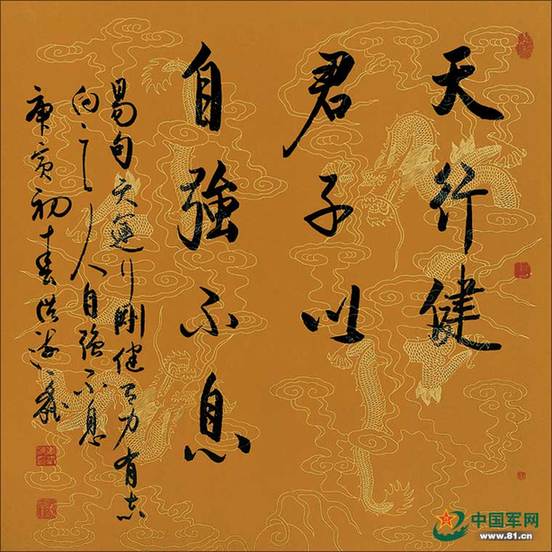 天行健
君子以
自強不息
易句天運行剛健有力有志
向之人自強不息
庚寅初
中国军网
www.81.cn